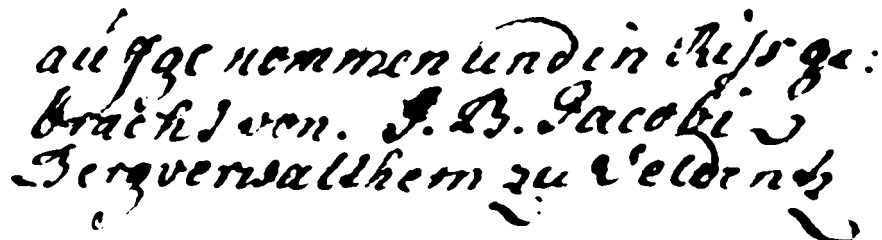 aufgenommen und in Riss ge:
bracht von. J. B. Jacobi
Bergverwalthern zu Veldentz